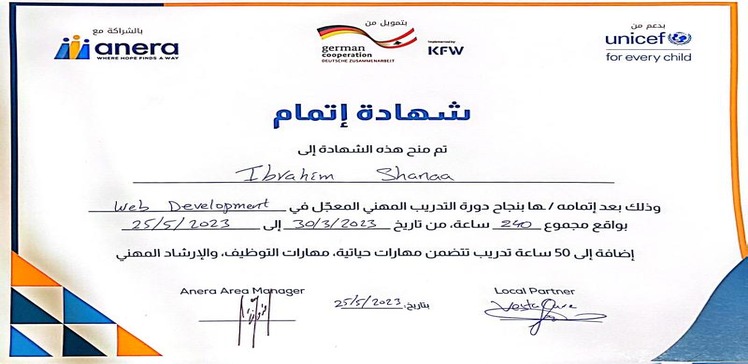 بالشراكة مع
anera
WHERE HOPE FINDS A WAY
بتمويل من
german
cooperation
DEUTSCHE ZUSAMMENARBEIT
Implemented by
KFW
بدعم من
unicef
for every child
شهادة إتمام
تم منح هذه الشهادة إلى
Ibrahim Shanaa
وذلك بعد إتمامه / ـها بنجاح دورة التدريب المهني المعجّل في Web Development
بواقع مجموع 240 ساعة، من تاريخ 30/3/2023 إلى 25/5/2023
إضافة إلى 50 ساعة تدريب تتضمن مهارات حياتية، مهارات التوظيف، والإرشاد المهني
Anera Area Manager
بتاريخ: 25/5/2023
Local Partner